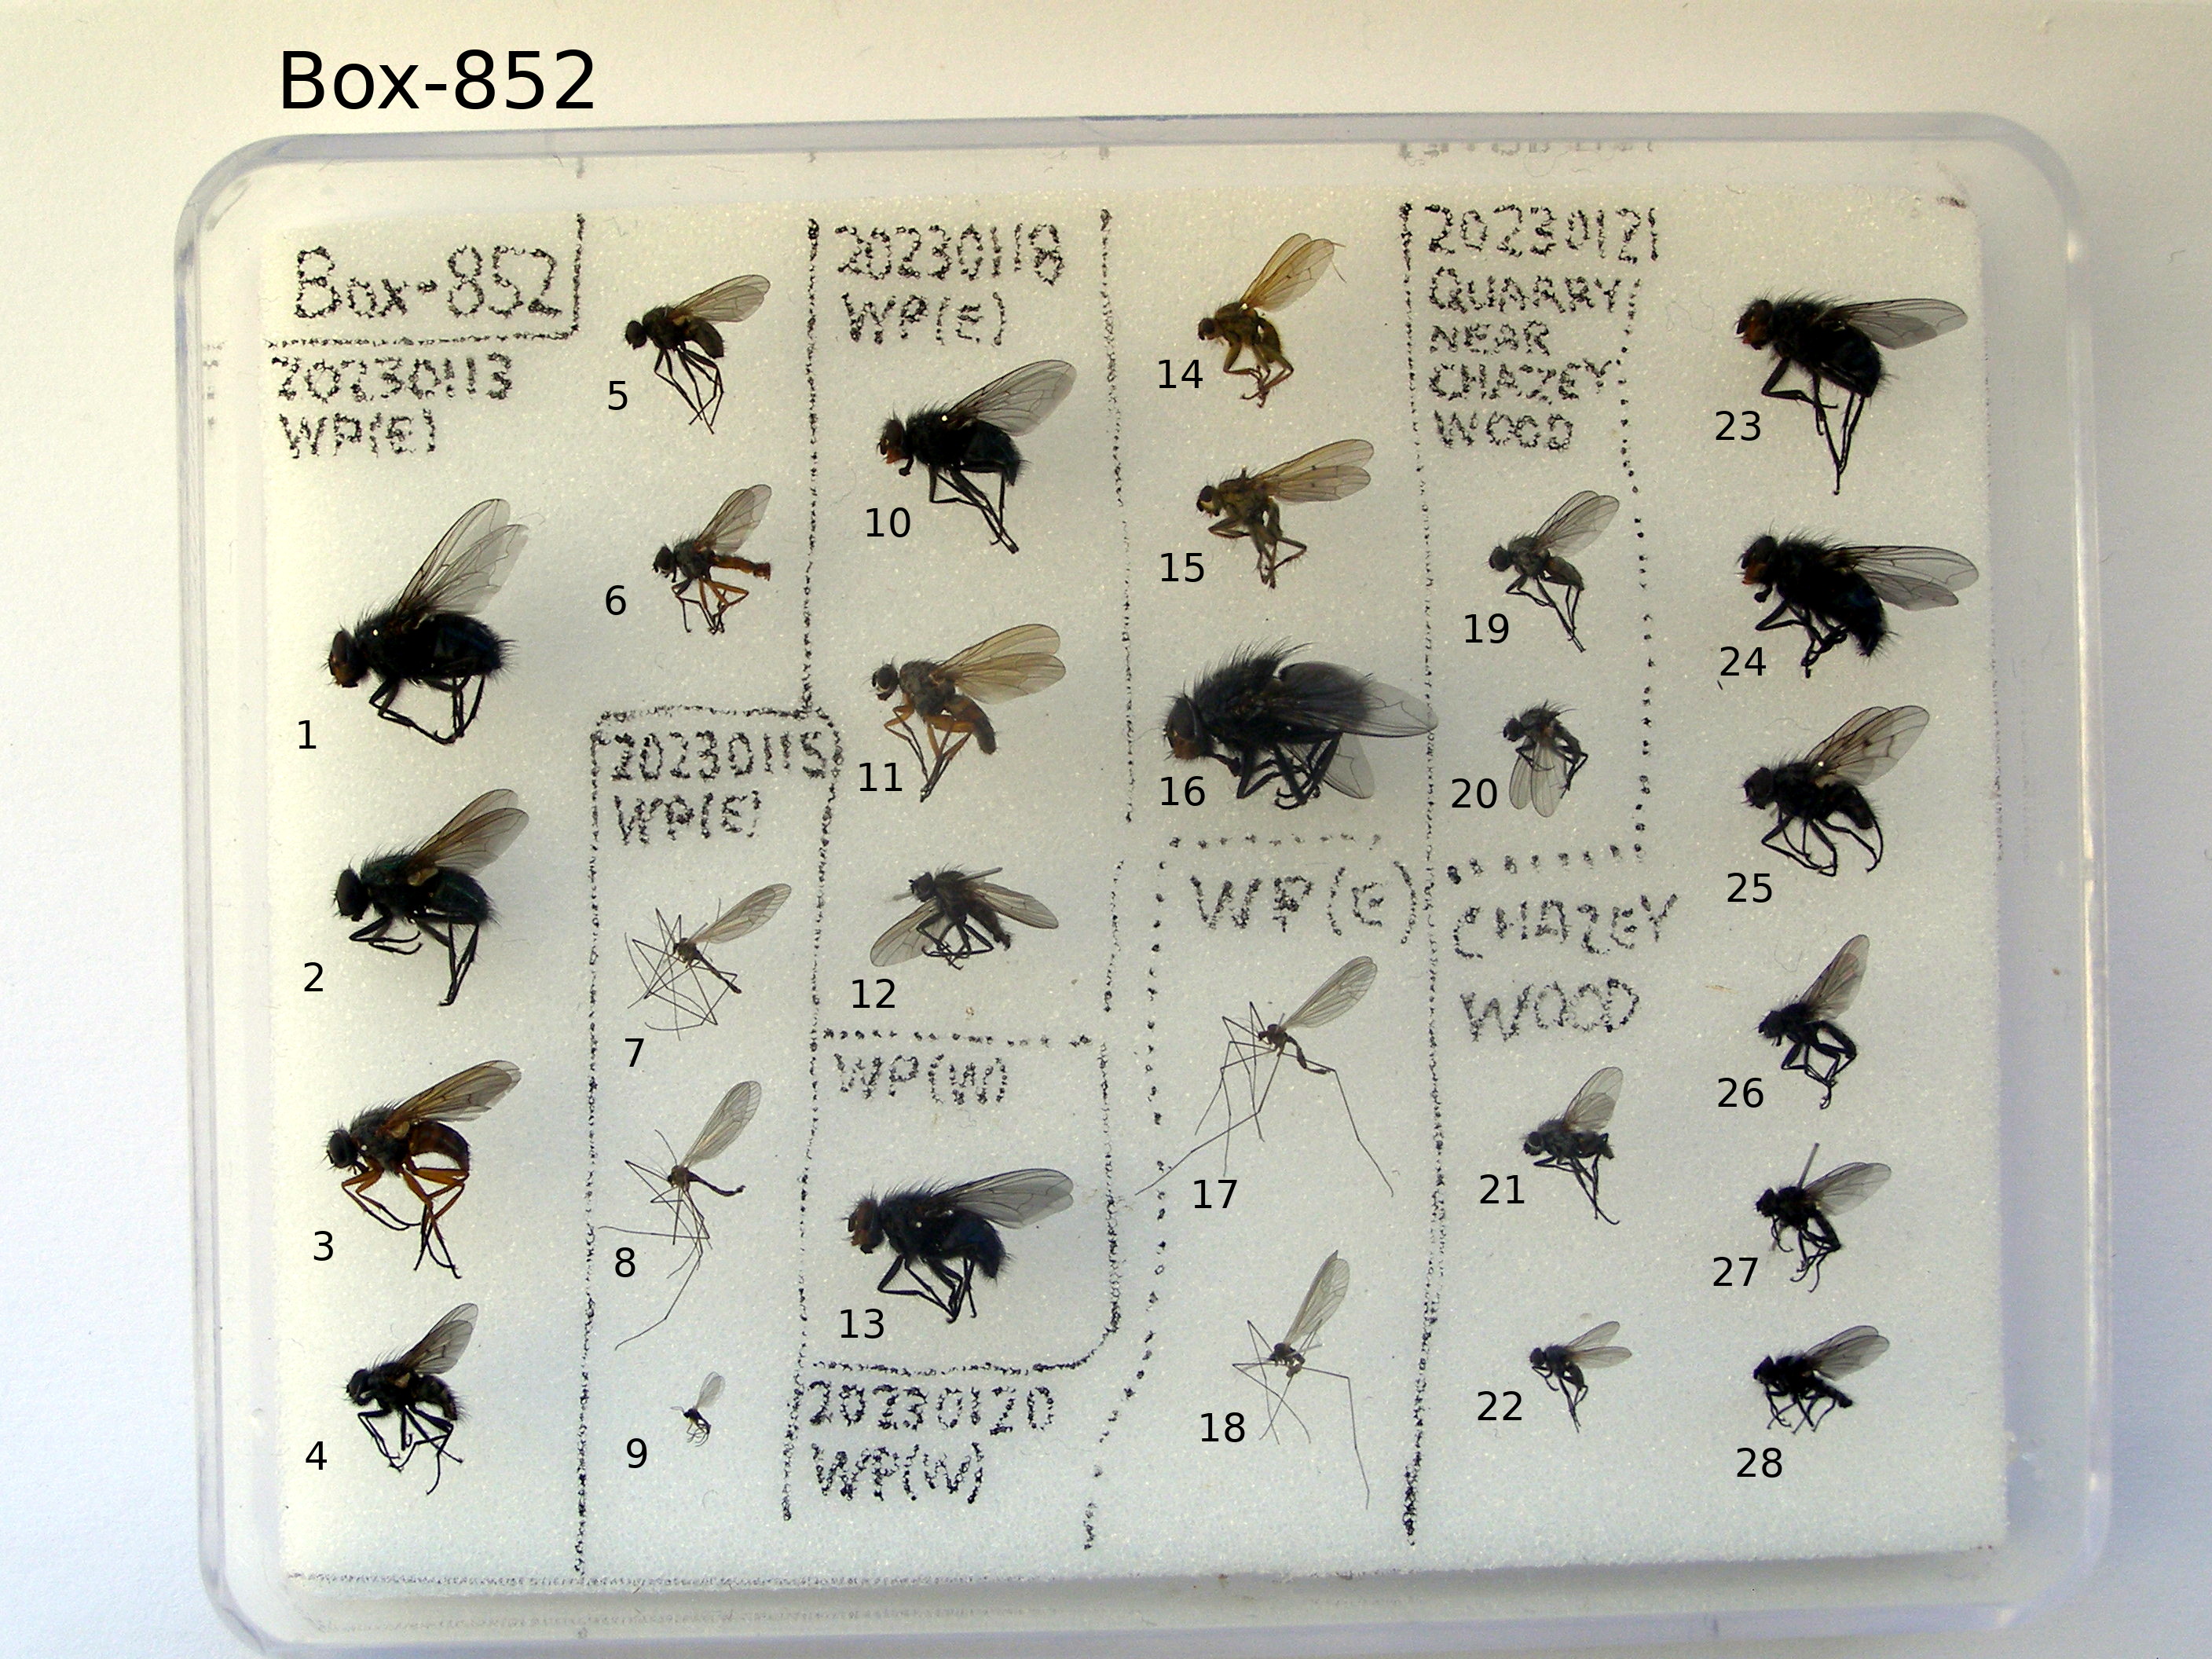 Box-852
Box-852
20230113
WP(E)
1
2
3
4
5
6
20230115
WP(E)
7
8
9
20230118
WP(E)
10
11
12
WP(W)
13
20230120
WP(W)
14
15
16
WP(E)
17
18
20230121
QUARRY
NEAR
CHAZEY
WOOD
19
20
CHAZEY
WOOD
21
22
23
24
25
26
27
28